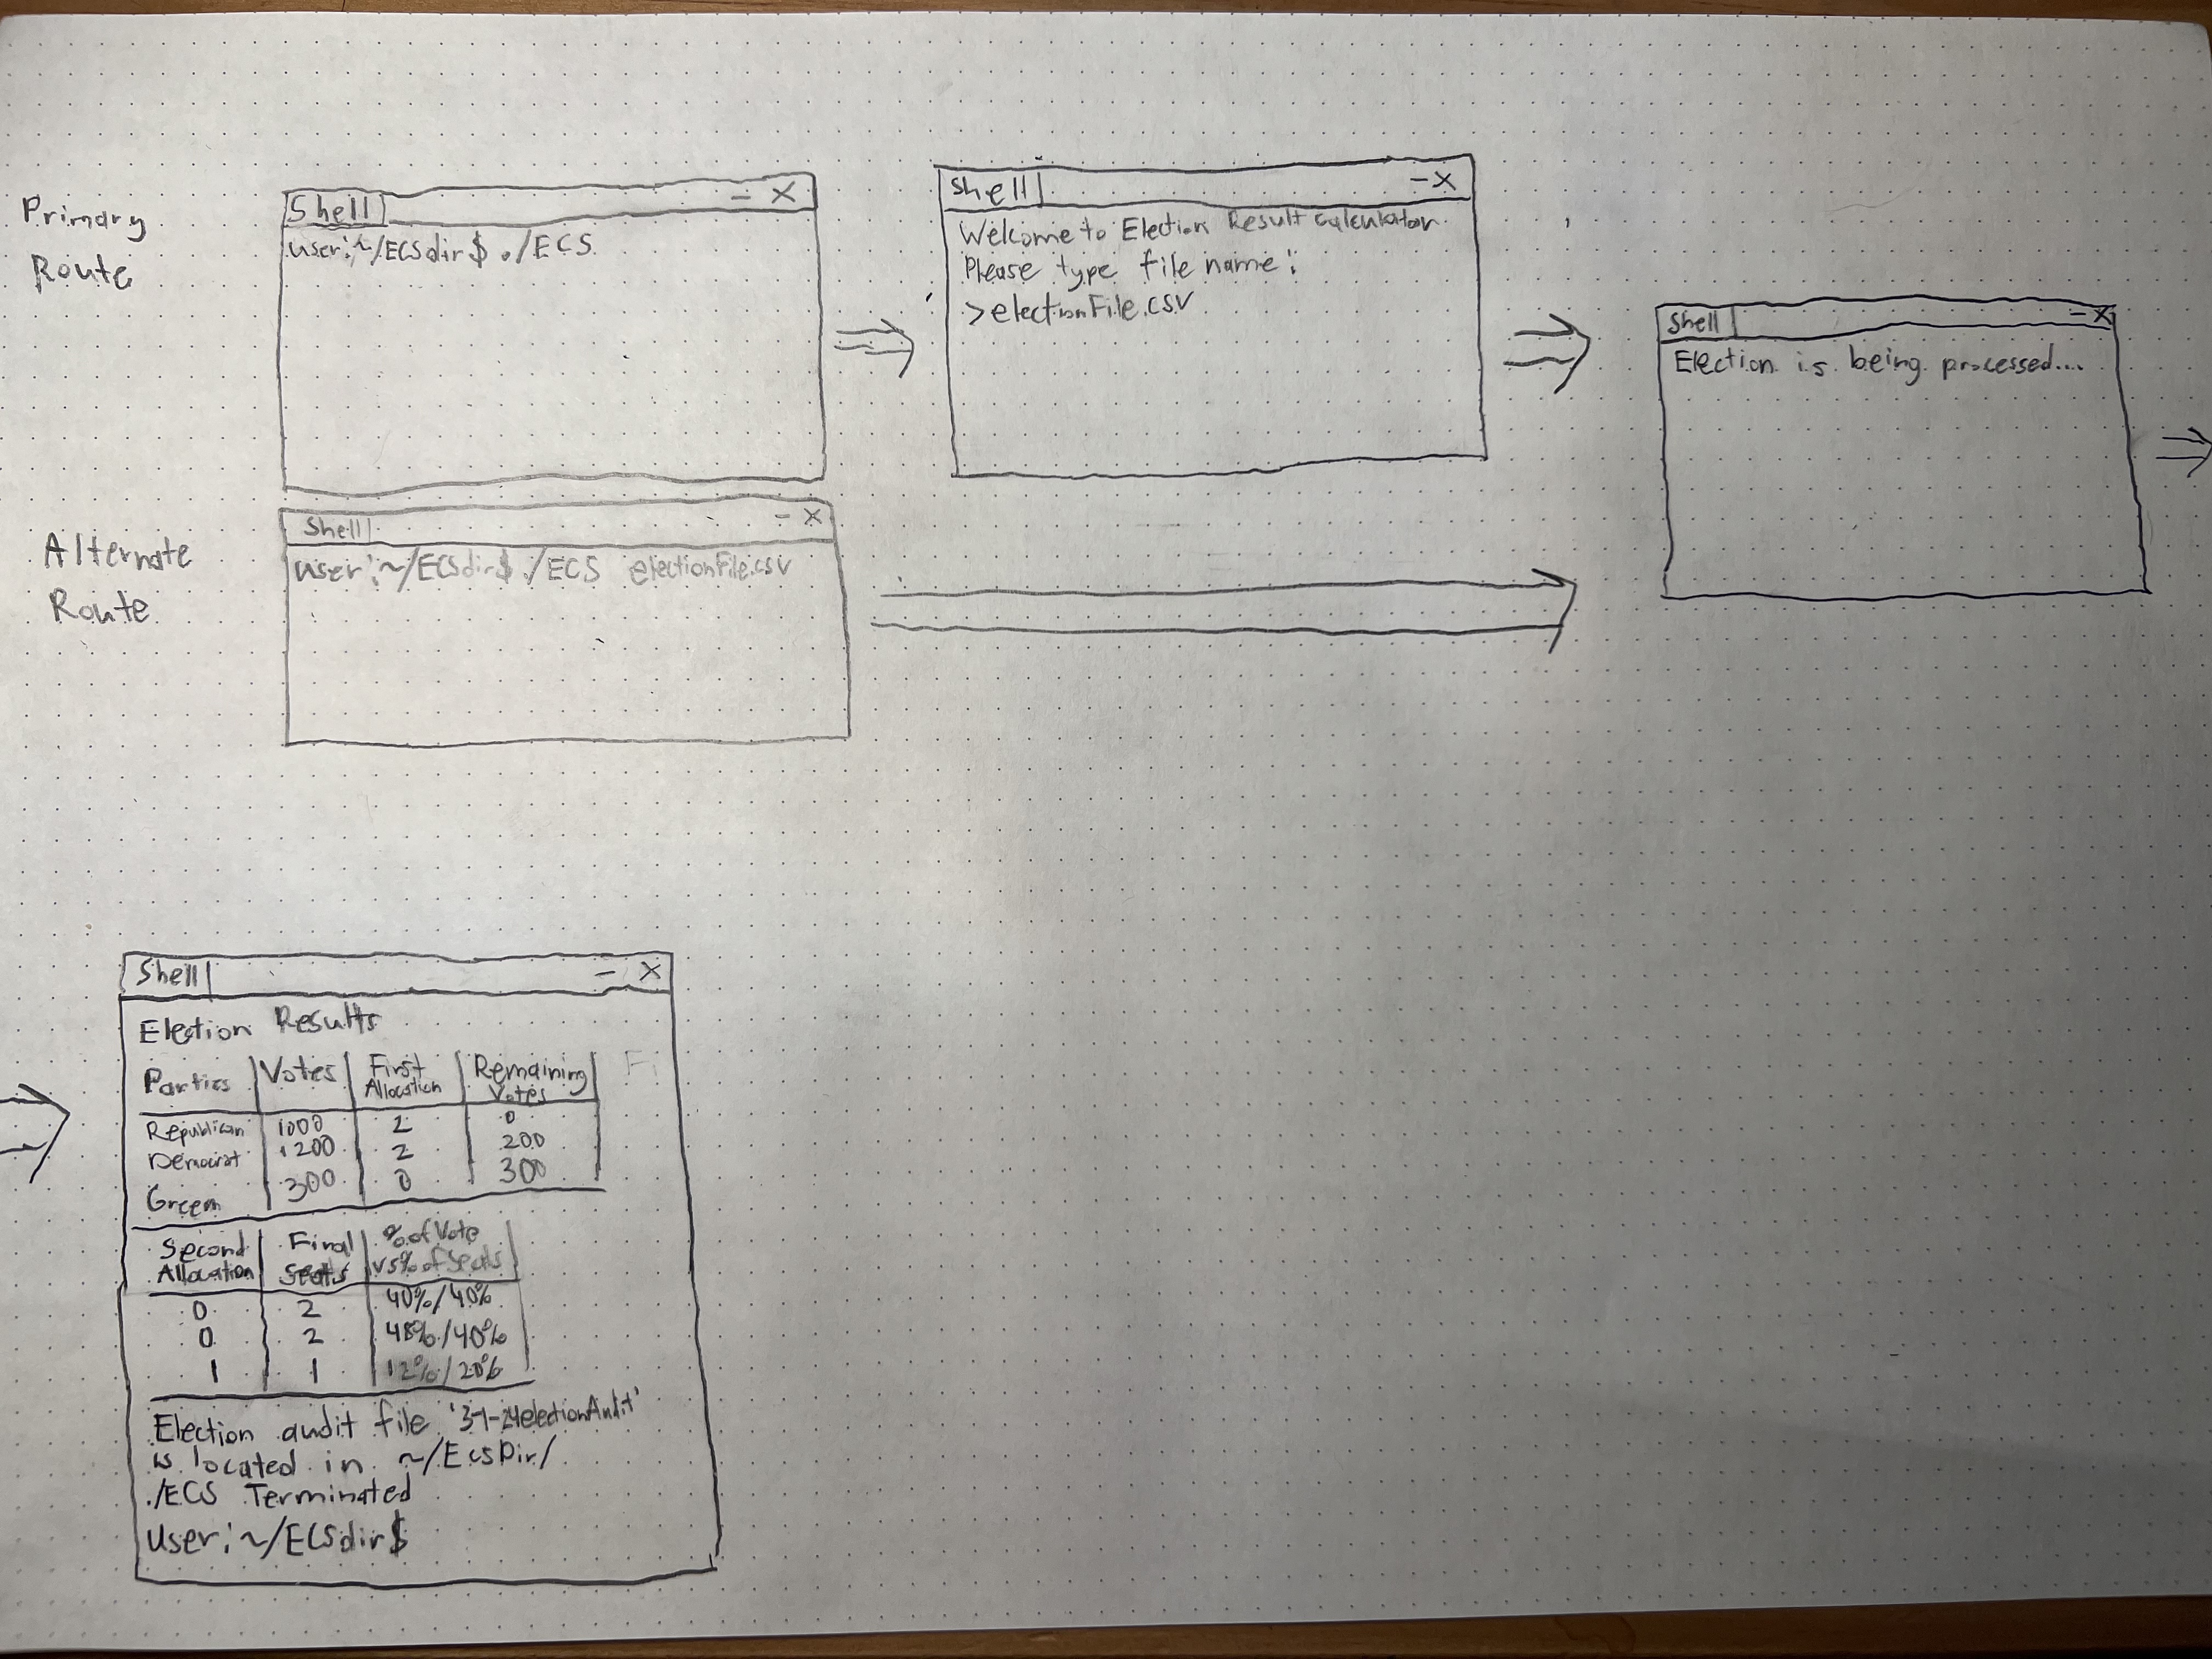 Primary
Route
Shell - X
user:~/ECSdir$ ./ECS
Shell - X
Welcome to Election Result calculator
Please type file name:
>electionFile.csv
Alternate
Route
Shell - X
user:~/ECSdir$ ./ECS electionFile.csv
Shell - X
Election is being processed....
Shell - X
Election Results
Parties | Votes | First Allocation | Remaining Votes | F
Republican 1000 2 0
Democrat 1200 2 200
Green 300 0 300
Second Allocation | Final Seats | % of Vote vs % of Seats
0 2 40%/40%
0 2 48%/40%
1 1 12%/20%
Election audit file
is located in ~/ECSDir/
./ECS Terminated
User:~/ECSdir$